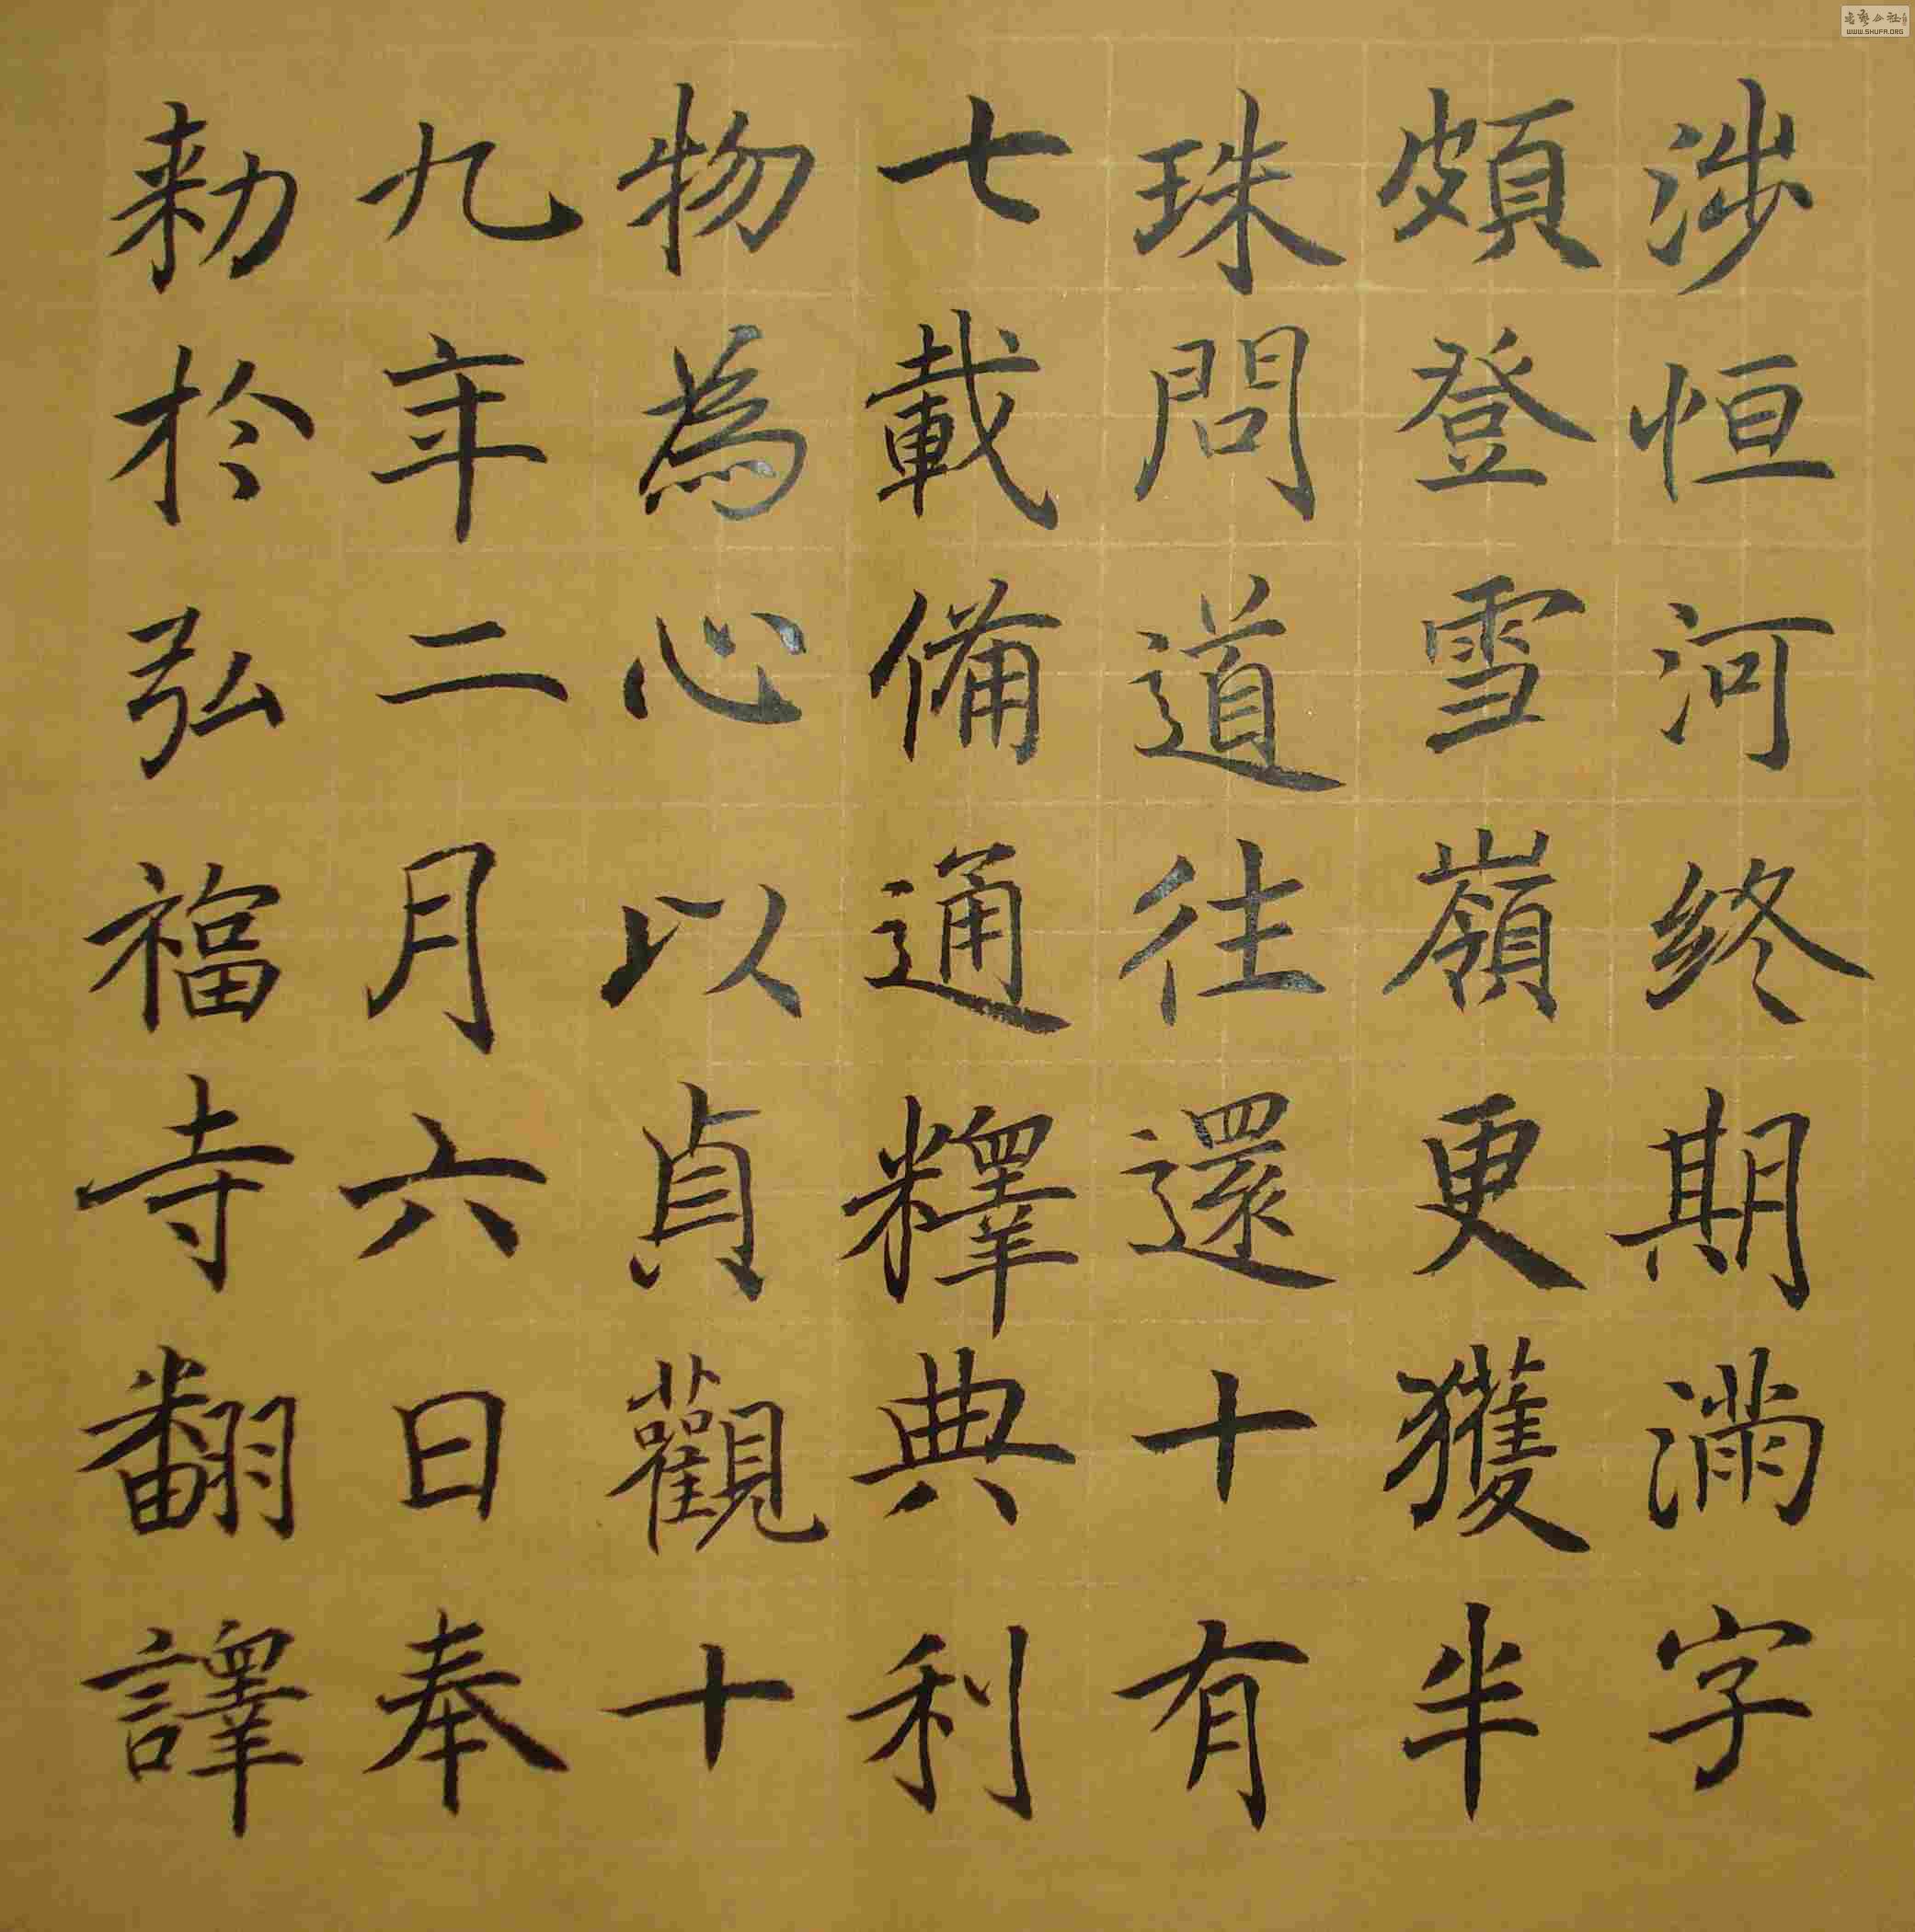 涉恒河終期滿字
頗登雪嶺更獲半
珠問道往還十有
七載備通釋典利
物為心以貞觀十
九年二月六日奉
勅於弘福寺翻譯
WWW.SHUFA.ORG